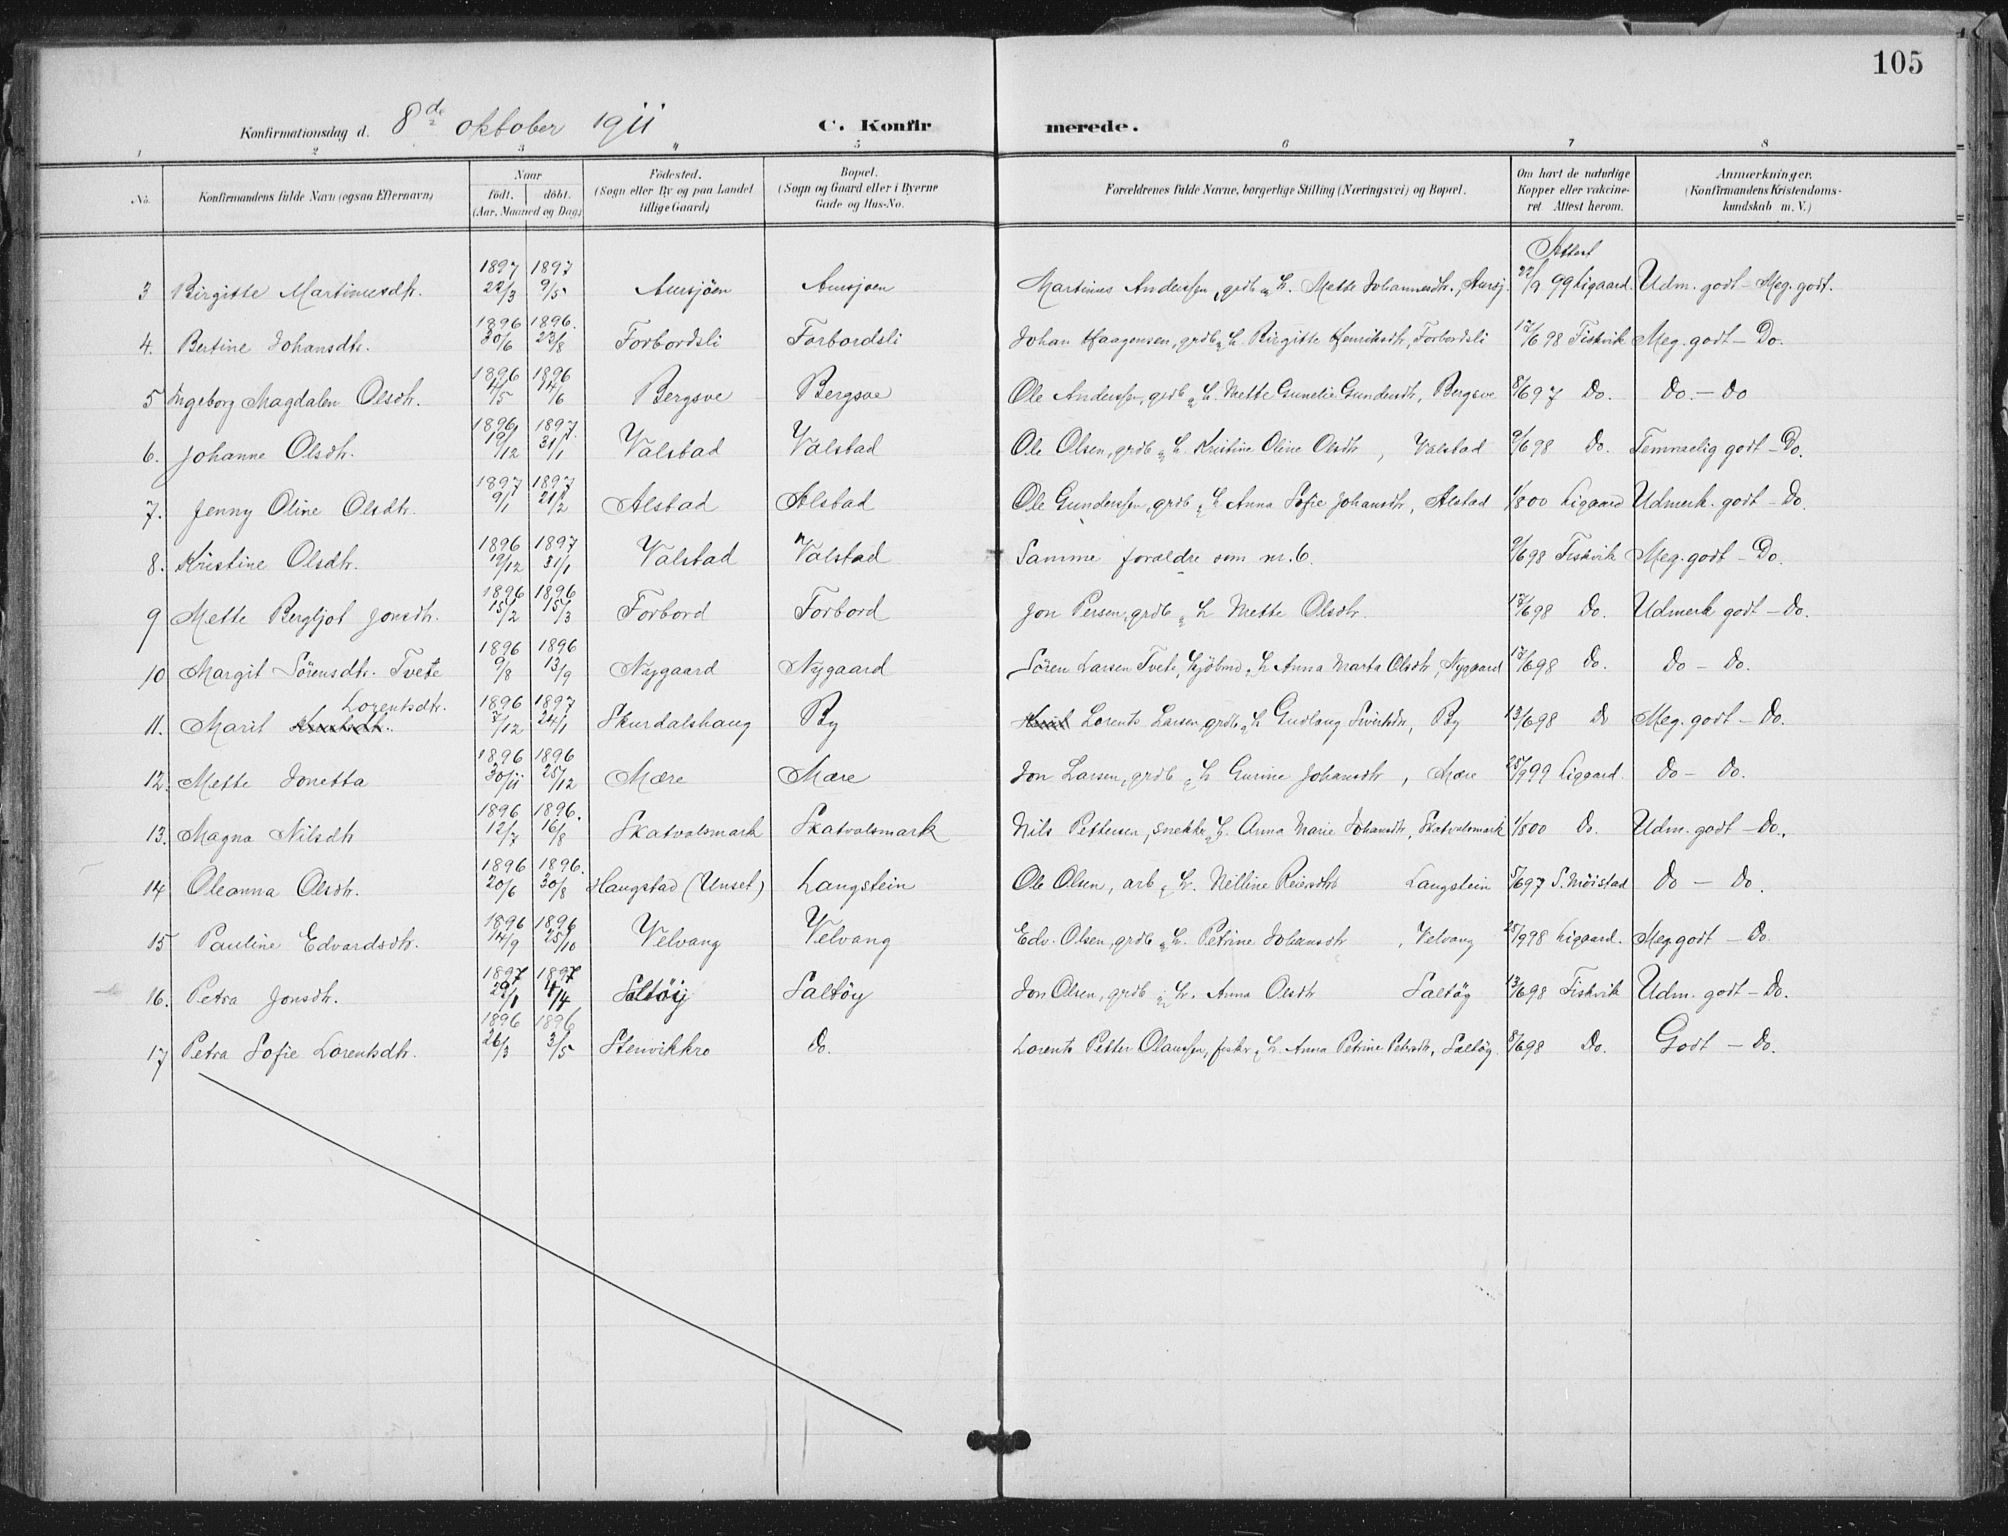 105
Konfirmationsdag d. 8de oktober 1911 C. Konfirmerede.
1 2 3 4 5 6 7 8
No. Konfirmandens fulde Navn (ogsaa Efternavn) Naar födt. döbt. (Aar, Maaned og Dag) Födested. (Sogn eller By og paa Landet tillige Gaard) Bopæl. (Sogn og Gaard eller i Byerne Gade og Hus-No. Forældrenes fulde Navne, borgerlige Stilling (Næringsvei) og Bopæl. Om havt de naturlige Kopper eller vakcineret Attest herom. Anmærkninger. (Konfirmandens Kristendomskundskab m. V.)
Attest
3 Birgitte Martinusdtr. 1897 22/3 1897 9/5 Aursjöen Aursjoen Martinus Anderssen, grdb. & H. Mette Johannesdtr., Aursj. 22/9 99 Ligaard. Udm. godt - Meg. godt.
4. Bertine Johansdtr. 1896 30/6 1896. 23/8 Forbordsli Forbordsli Johan Haagensen, grdb & H. Birgitte Henriksdtr, Forbordsli 17/6 98 Fiskvik Meg. godt - Do.
5 Ingeborg Magdalen Olsdtr. 1896 4/5 1896 14/6 Bergsve Bergsve Ole Anderssen, grdb & H. Mette Gunelie Gundersdtr, Bergsve 8/6 97 Do. Do. - Do
6. Johanne Olsdtr. 1896 19/12 1897. 31/1 Valstad Valstad Ole Olsen, grdb & H. Kristine Oline Olsdtr, Valstad 9/6 98 Do. Temmelig godt - Do.
7. Jenny Oline Olsdtr. 1897 9/1 1897 21/2 Alstad Alstad Ole Gunderssen, grdb & H Anna Sofie Johansdtr, Alstad 1/8 00 Ligaard Udmerk. godt - Do.
8. Kristine Olsdtr. 1896 19/12 1897 31/1 Valstad Valstad Samme forældre som nr. 6. 9/6 98 Fiskvik Meg. godt - Do.
9 Mette Bergljot Jonsdtr. 1896 15/2 1896 15/3 Forbord Forbord Jon Persen, grdb & H Mette Olsdtr. 17/6 98 Do. Udmerk godt - Do.
10 Margit Sörensdtr. Tvete 1896 9/8 1896 13/9 Nygaard Nygaard Sören Larsen Tvete, Kjöbmd. & H Anna Marta Olsdtr, Nygaard 17/6 98 Do. Do - Do.
11. Marit Lorentsdtr. 1896 7/12 1897 24/1 Skurdalshaug By Lorents Larsen, grdb & H Gudlaug Sivertsdtr, By 13/6 98 Do Meg. godt - Do.
12. Mette Jonetta 1896 30/11 1896 25/12 Mære Mære Jon Larsen, grdb & H Gurine Johansdtr, Mære 25/9 99 Ligaard. Do - Do.
13. Magna Nilsdtr 1896 12/7 1896. 16/8 Skatvalsmark Skatvalsmark Nils Pettersen, snekker & H. Anna Marie Johansdtr, Skatvalsmark 1/8 00 Do. Udm. godt - Do.
14 Oleanna Olsdtr. 1896 20/6 1896. 30/8 Haugstad (Unset) Langstein Ole Olsen, arb & H. Nilline Reiersdtr Langstein 5/6 97 S. Möistad Do - Do.
15 Pauline Edvardsdtr. 1896 14/9 1896 25/10 Velvang Velvang Edv. Olsen, grdb & H. Petrine Johansdtr, Velvang 25/9 98 Ligaard. Meg. godt - Do.
16. Petra Jonsdtr. 1897 1897 Saltöy Saltöy Jon Olsen, grdb & H. Anna Olsdtr Saltöy 13/6 98 Fiskvik Udm. godt - Do.
17 Petra Sofie Lorentsdtr. 1896 26/3 1896 3/5 Stenvikkro Do. Lorents Petter Olaussen, fisker & H. Anna Petrine Petersdtr, Saltöy 8/6 98 Do. Godt - Do.